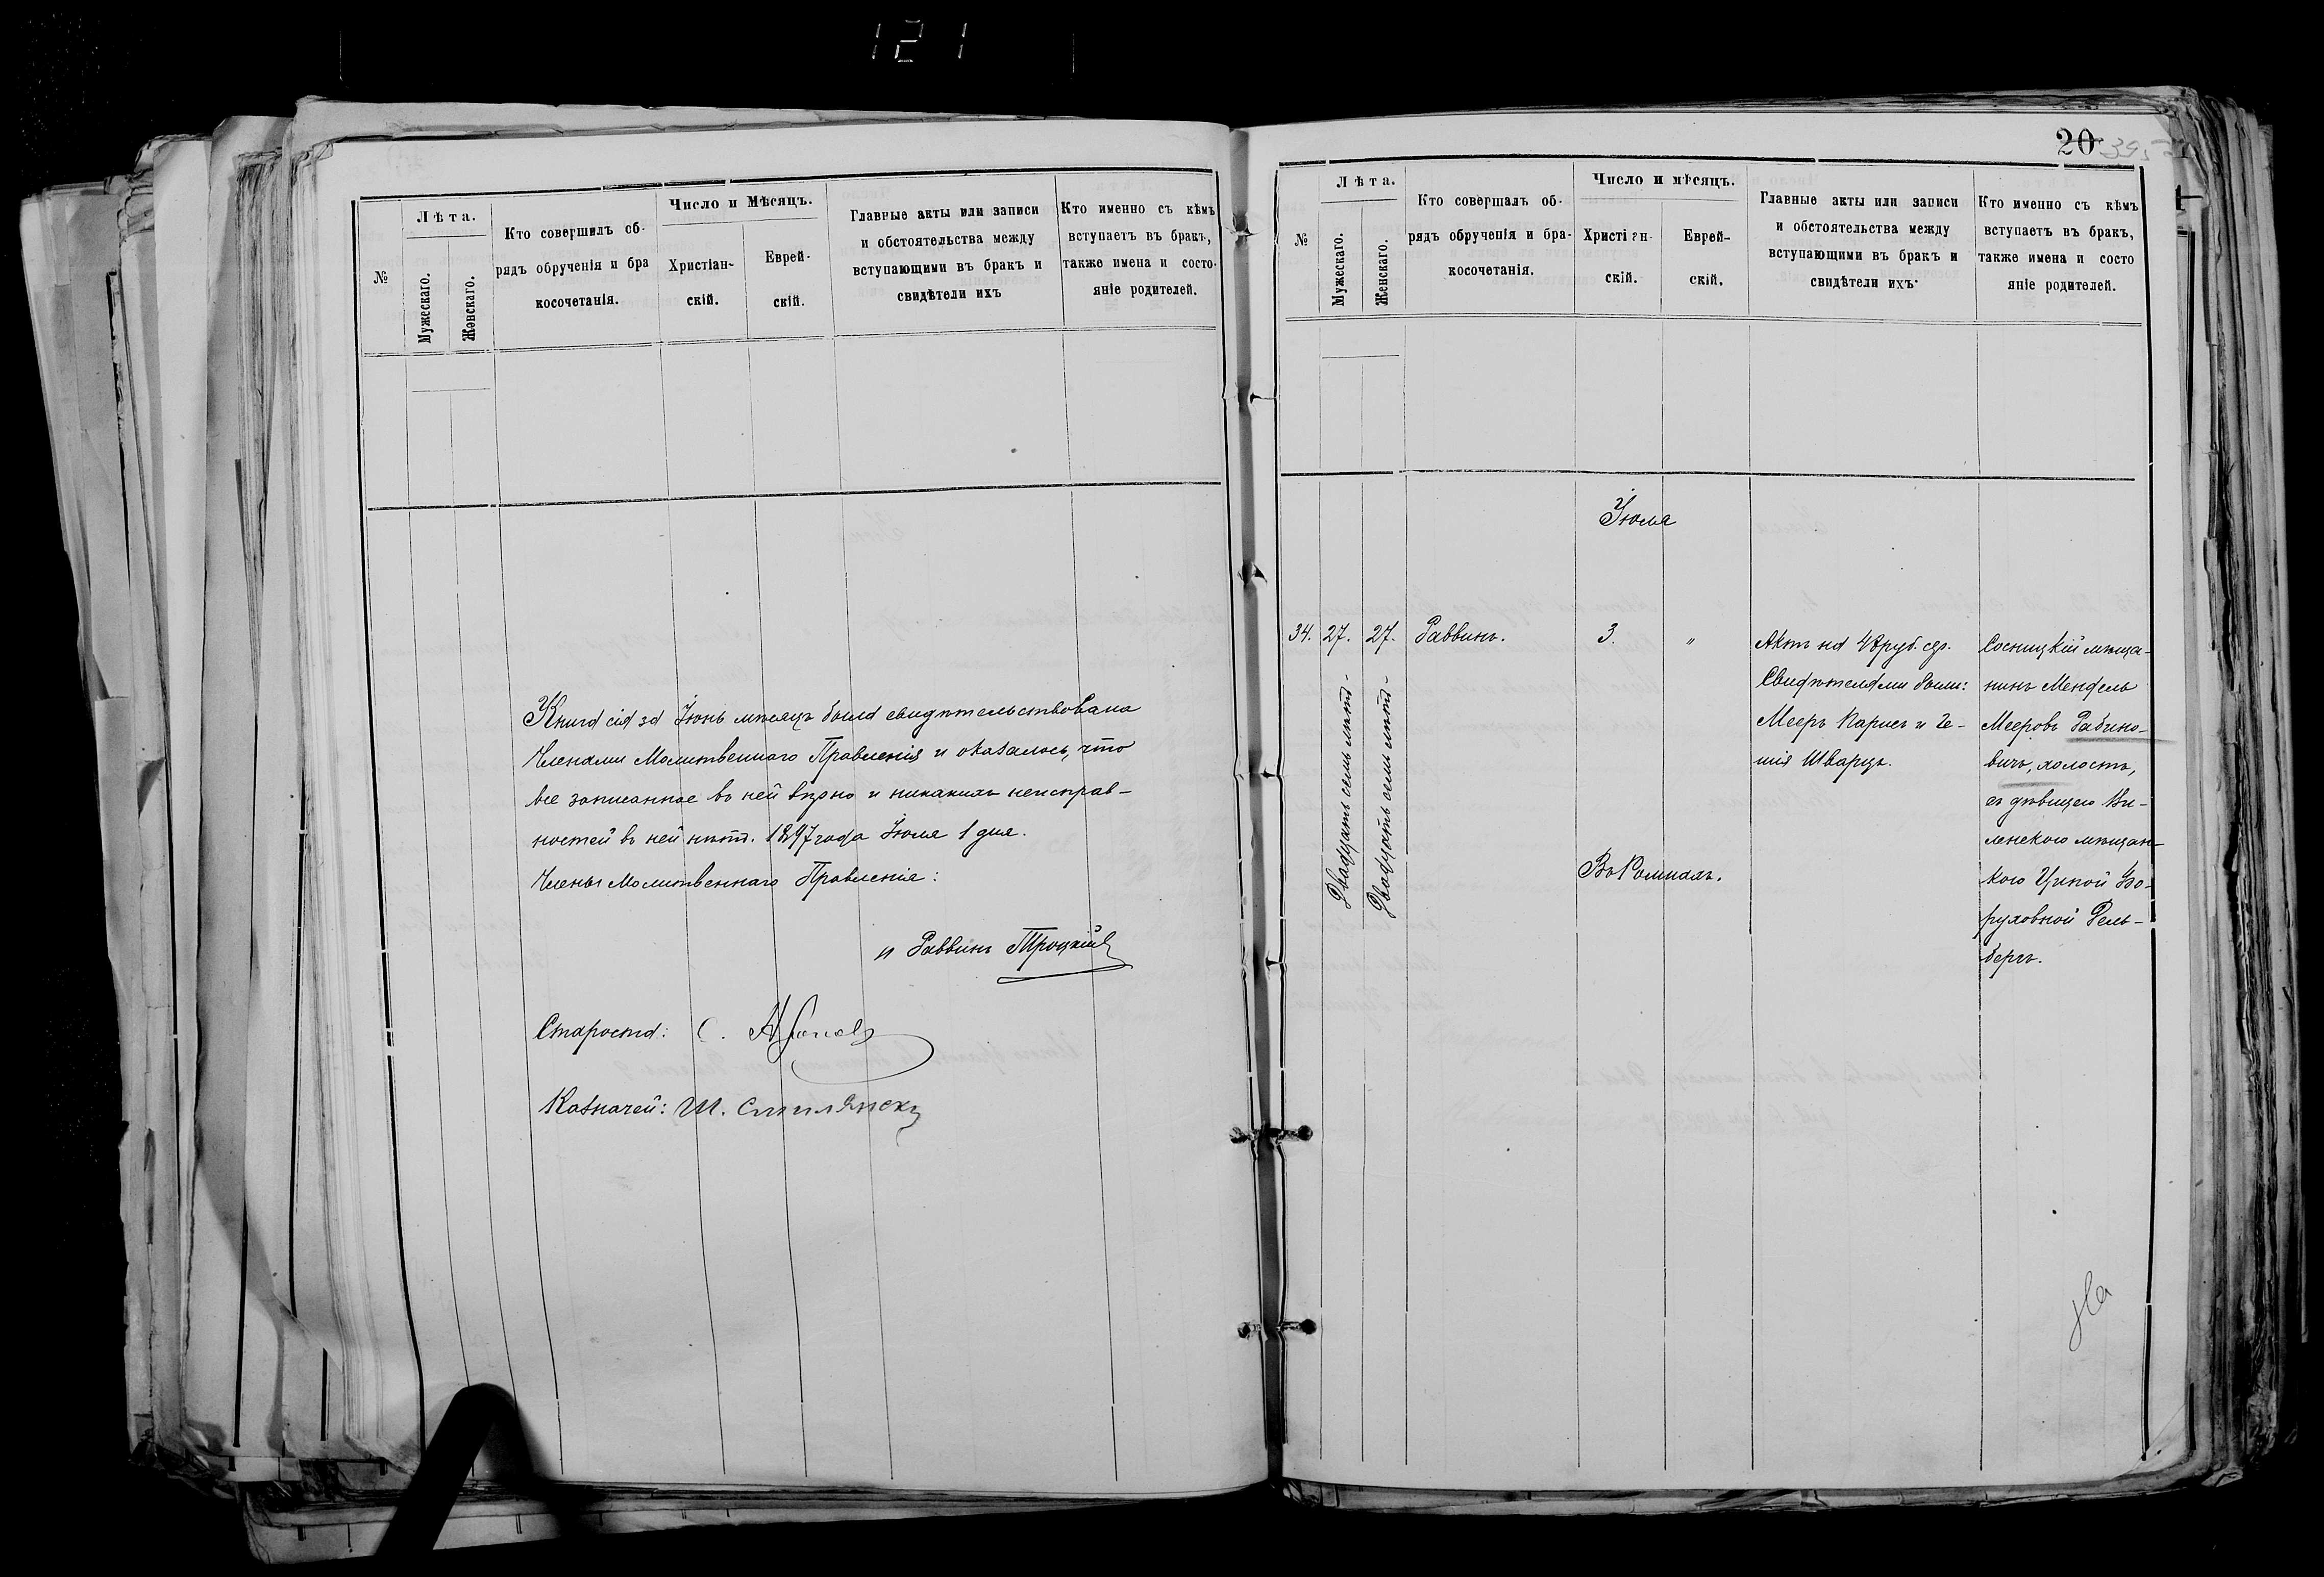 121
№
Лѣта.
Мужескаго.
Женскаго.
Кто совершилъ об-
рядъ обрученія и бра
косочетанія.
Число и Мѣсяцъ.
Христіан-
скій.
Еврей-
скій.
Главные акты или записи
и обстоятельства между
вступающими въ бракъ и
свидѣтели ихъ
Кто именно съ кѣмъ
вступаетъ въ бракъ,
также имена и состо-
яніе родителей.
Книга сія за Іюнь мѣсяцъ была свидѣтельствована
Членами Молитвеннаго Правленія и оказалось, что
все записанное въ ней вѣрно и никакихъ неисправ-
ностей въ ней нѣтъ. 1897 года Іюля 1 дня.
Члены Молитвеннаго Правленія:
и Раввинъ Троцкій
Староста: С.
Казначей: Ш.
20
395
№
Лѣта.
Мужескаго.
Женскаго.
Кто совершалъ об-
рядъ обрученія и бра-
косочетанія.
Число и мѣсяцъ.
Христіан-
скій.
Еврей-
скій.
Главные акты или записи
и обстоятельства между
вступающими въ бракъ и
свидѣтели ихъ
Кто именно съ кѣмъ
вступаетъ въ бракъ,
также имена и состо
яніе родителей.
Іюля
34. 27. 27. Раввинъ. 3. "
Двадцать семь лѣтъ-
Двадцать семь лѣтъ-
Въ Ромнахъ.
Актъ на 48 руб. сер.
Свидѣтелями были:
Мееръ Карисъ и Ге-
шія Шварцъ.
Сосницкій мѣща-
нинъ Мендель
Мееровъ Рабино-
вичъ, холостъ,
съ дѣвицею Ви-
ленскою мѣщан-
кою Ципой Бо-
руховной Гель-
бергъ.
На